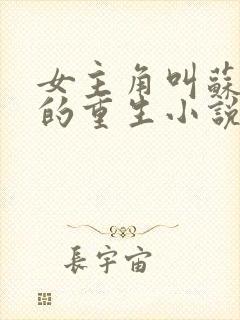 女主角叫蘇
的重生小說
長宇宙